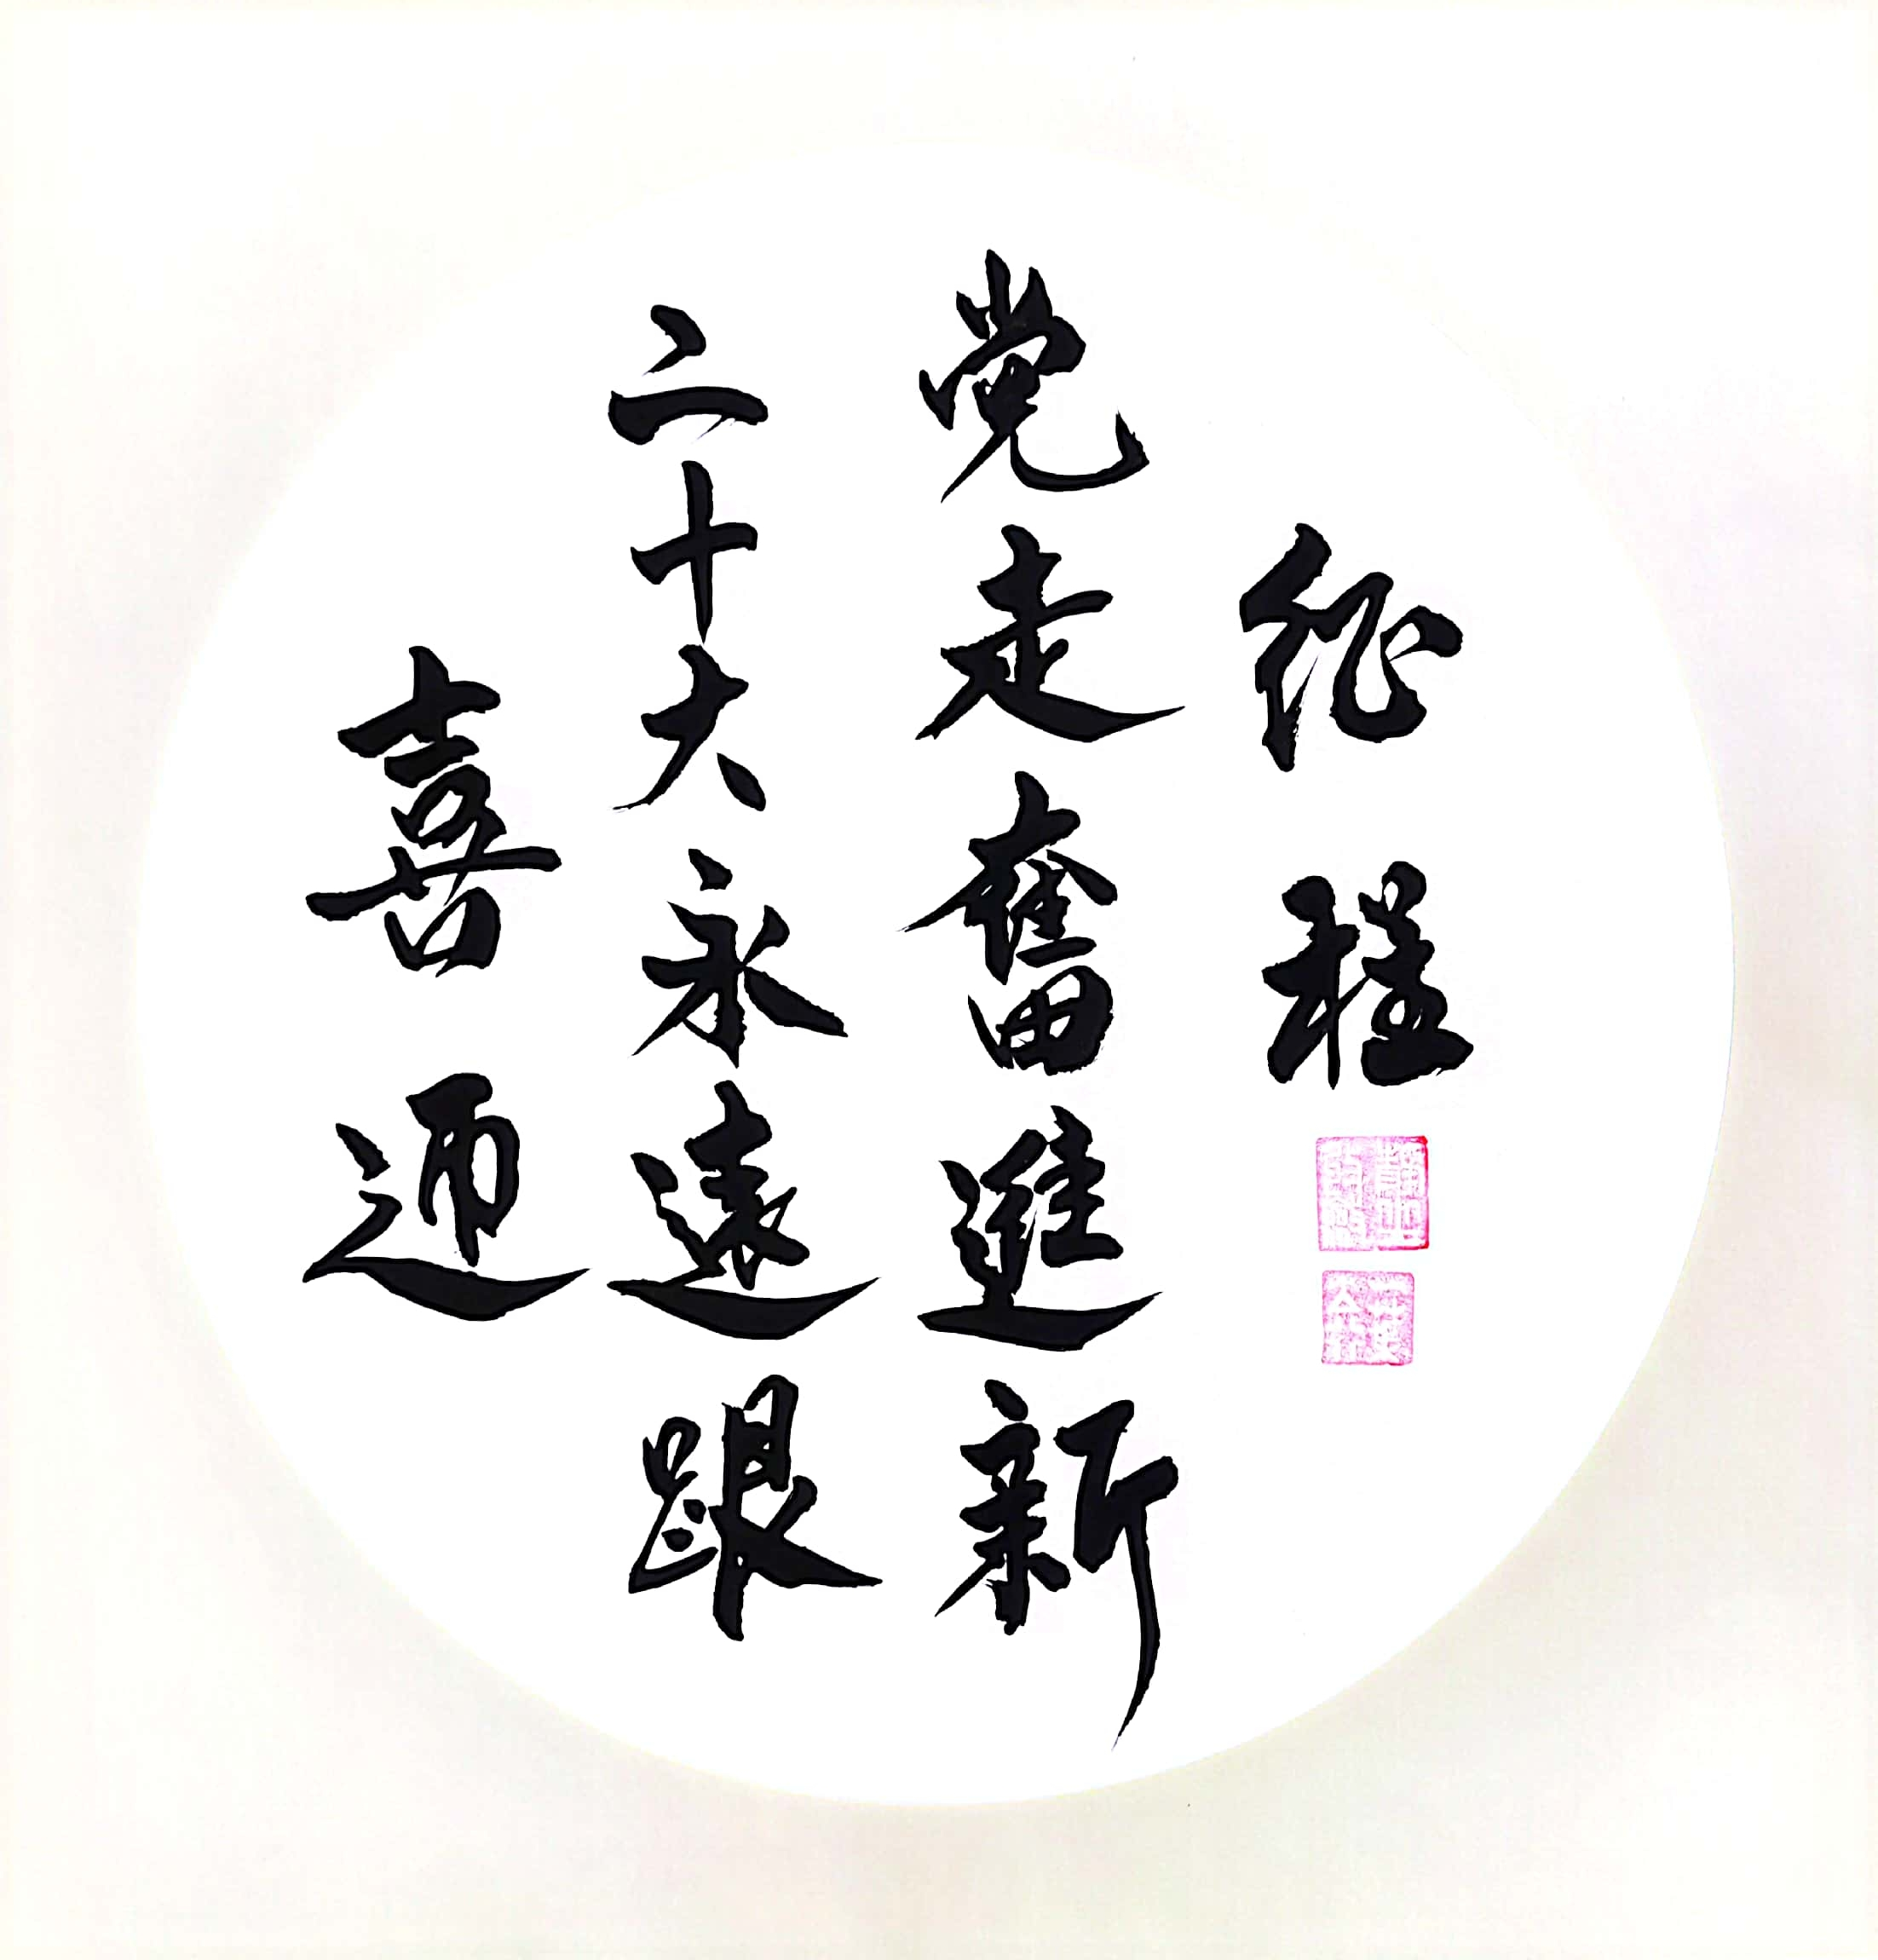 喜迎
二十大永遠跟
党走奮進新
征程